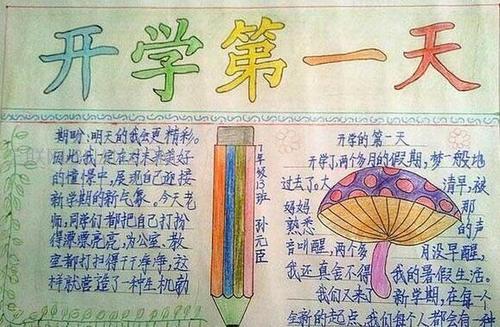 开学第一天
期盼,明天的我会更精彩。
因此,我一定在对未来美好
的憧憬中,展现自己迎接
新学期的新气象。今天老
师,同学们都把自己打扮
得漂漂亮亮,为公室、教
室都打扫得干干净净,这
样就营造了一种生机勃
7年级13班 孙元臣
开学的第一天
开学了,两个多月的假期,梦一般地
过去了。大清早,被
妈妈那
熟悉的声
音叫醒,两个多月没早醒,
我还真会不得我的暑假生活。
我们又来了新学期,在每一个
全新的起点,我们每个人都会有一种